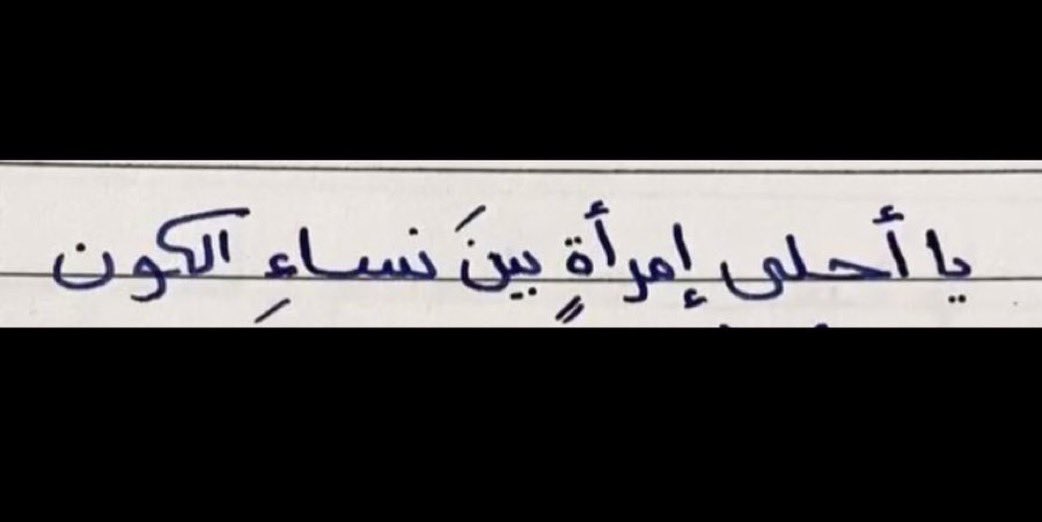 يا أحلى إمرأةٍ بينَ نساءِ الكون